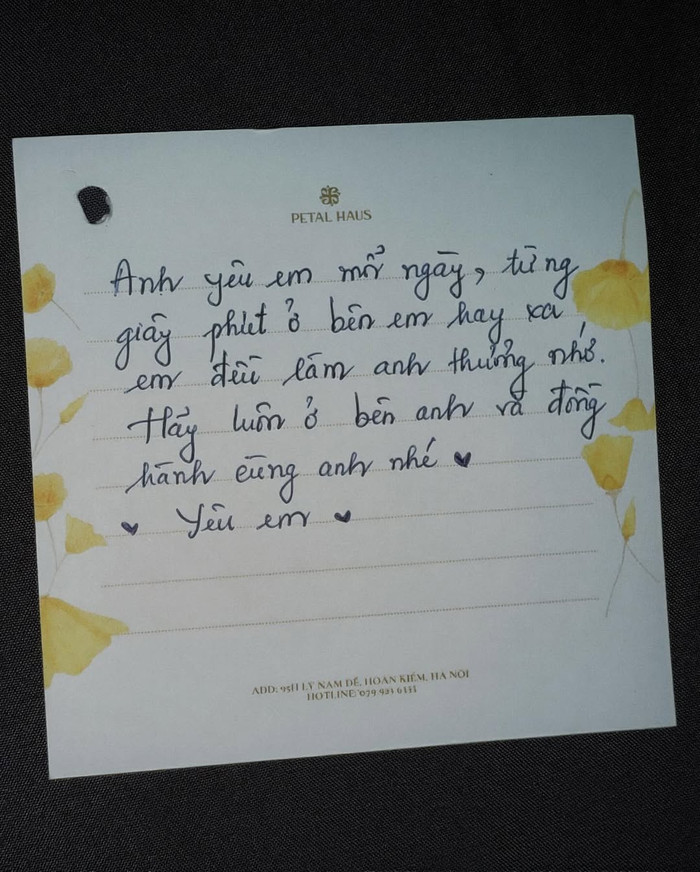 PETAL HAUS
Anh yêu em mỗi ngày, từng
giây phút ở bên em hay xa
em đều làm anh thương nhớ.
Hãy luôn ở bên anh và đồng
hành cùng anh nhé
Yêu em
ADD: 95H LÝ NAM ĐẾ, HOÀN KIẾM, HÀ NỘI
HOTLINE: